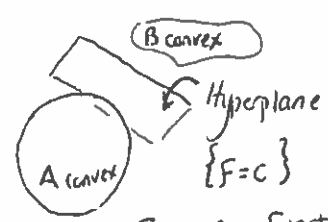 B convex
Hyperplane
A convex
{F=C}